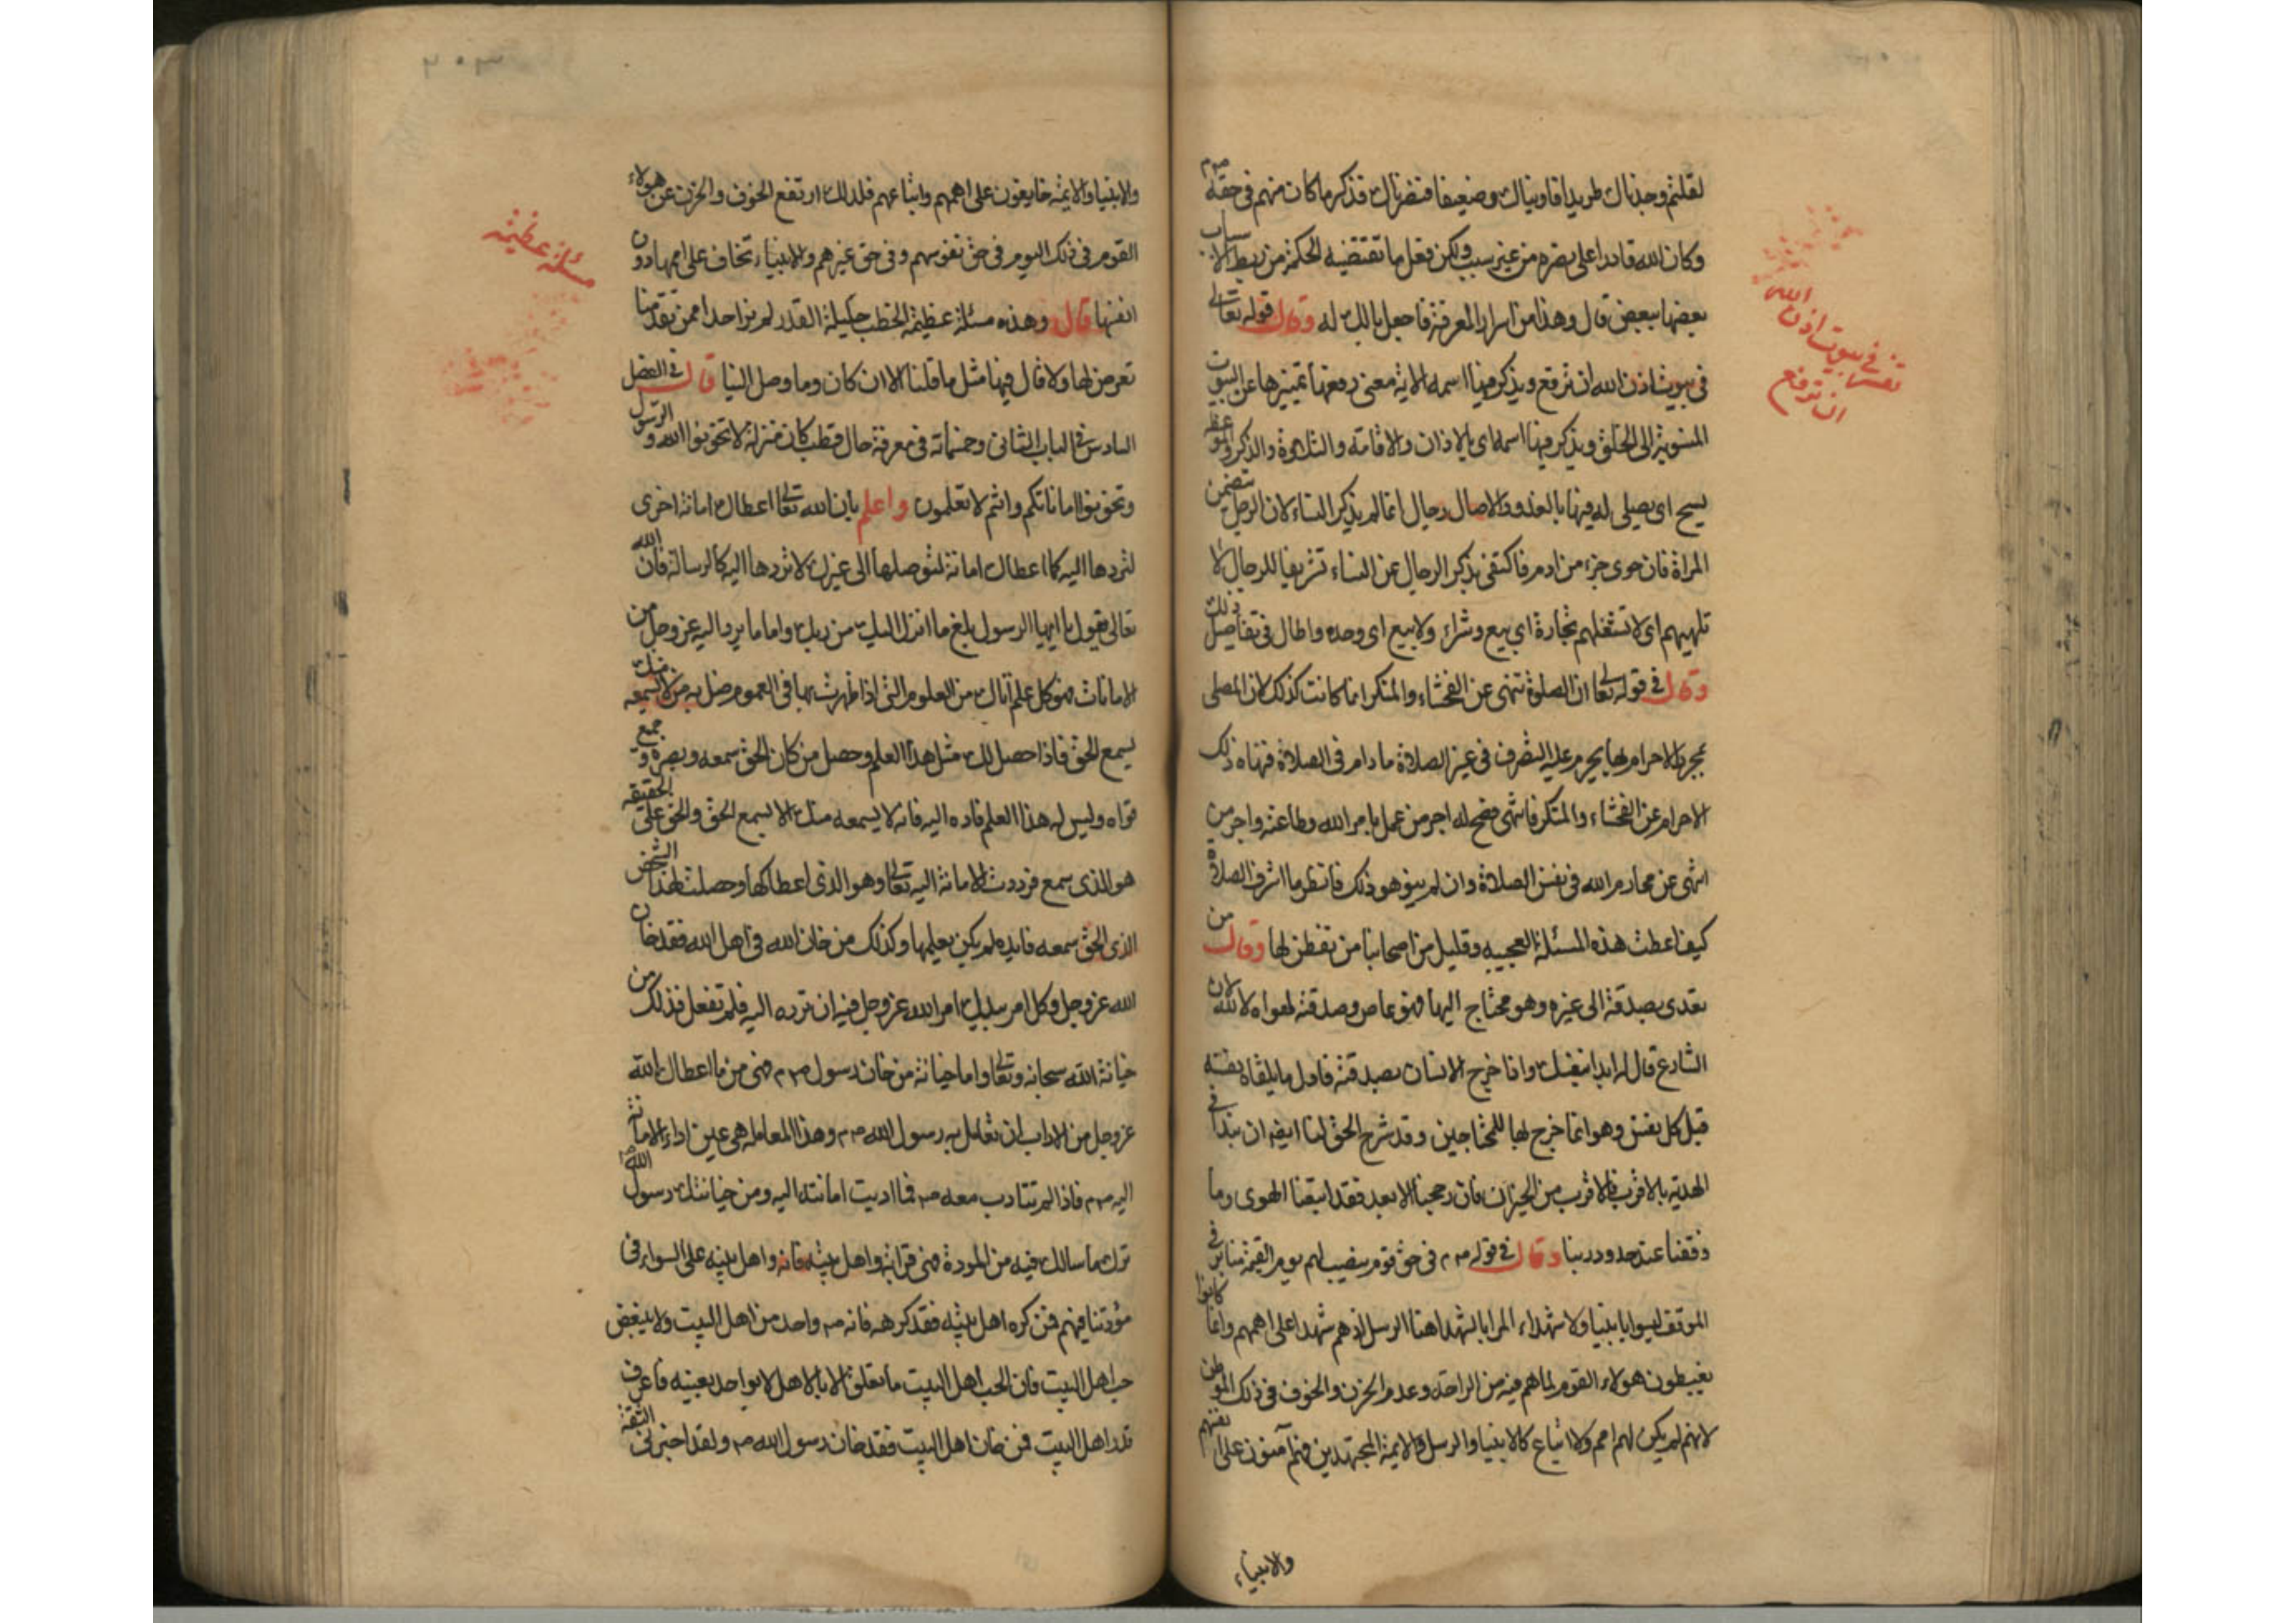 لقلتم وجدناك طريدا فاويناك وضعيفا فنصرناك فذكر ما كان منهم في حقه صم
وكان الله قادرا على نصره من غير سبب ولكن فعل ما تقتضيه الحكمة من ربط الاسباب
بعضها ببعض قال وهذا من اسرار المعرفة فاجعل بالك له وقال قوله تعالى
في بيوت اذن الله ان ترفع ويذكر فيها اسمه الاية معنى رفعها تميزها عن البيوت
المنسوبة الى الخلق ويذكر فيها اسمه اى بالاذان والاقامة والتلاوة والذكر والموعظ
يسبح اى يصلى له فيها بالغدو والاصال رجال انما لم يذكر النساء لان الرجل يتضمن
المراة فان حوى جزء من ادم فاكتفى بذكر الرجال عن النساء تشريفا للرجال لا
تلهيهم اى لا تشغلهم تجارة اى بيع وشراء ولا بيع اى وحده واطال في تفاصيل ذلك
وقال في قوله تعالى ان الصلوة تنهى عن الفحشاء والمنكر انما كانت كذلك لان المصلى
بمجرد الاحرام لها يحرم عليه التصرف في غير الصلاة ما دام في الصلاة فنهاه ذلك
الاحرام عن الفحشاء والمنكر فانتهى فصح له اجر من عمل بامر الله وطاعته واجر من
انتهى عن محارم الله في نفس الصلاة وان لم ينو هو ذلك فانظر ما اشرف الصلاة
كيف اعطت هذه المسئلة العجيبه وقليل من اصحابنا من تفطن لها وقال من
تعدى بصدقة الى غيره وهو محتاج اليها فهو عاص وصدقته لهواه لا لله لان
الشارع قال له ابدا بنفسك واذا خرج الانسان بصدقته فاول ما يلقاه نفسه
قبل كل نفس وهو انما خرج لها للمحتاجين وقد شرح الحق لنا ايضا ان نبدا في
الهدية بالاقرب فالاقرب من الجيران فان رجحنا الابعد فقد اتبعنا الهوى وما
وقفنا عند حدود ربنا وقال في قوله صم في حق قوم ينصب لهم يوم القيمة منابر في
الموقف ليسوا بانبيا ولا شهداء المراد بالشهدا هنا الرسل اذ هم شهدا على اممهم وانما كانوا
يغبطون هولاء القوم لما هم فيه من الراحة وعدم الحزن والخوف في ذلك الموطن
لانهم لم يكن لهم امم ولا اتباع كالانبيا والرسل والايمة المجتهدين فهم آمنون على انفسهم
والانبياء
تفسير في بيوت اذن الله
ان ترفع
والانبيا والايمة خايفون على اممهم واتباعهم فلذلك ارتفع الخوف والحزن عن هولاء
القوم في ذلك اليوم في حق نفوسهم وفي حق غيرهم والانبياء تخاف على اممها دون
انفسها قال وهذه مسئلة عظيمة الخطب جليلة القدر لم نر احدا ممن تقدمنا
تعرض لها ولا قال فيها مثل ما قلنا الا ان كان وما وصل الينا قال في الفصل
السادس في الباب الثانى وخمسماية في معرفة حال قطب كان منزله لا تخونوا الله والرسول
وتخونوا اماناتكم وانتم لا تعلمون واعلم بان الله تعالى اعطاك امانة اخرى
لتردها اليه كما اعطاك امانة لتوصلها الى غيرك لا تردها اليه كالرسالة فان الله
تعالى يقول يا ايها الرسول بلغ ما انزل اليك من ربك واما ما يرد اليه عز وجل من
الامانات فهو كل علم آتاك من العلوم التى اذا ظهرت بها في العموم ضل به من لا يسمعه منك
يسمع الحق فاذا حصل لك مثل هذا العلم وحصل من كان الحق سمعه وبصره وجميع
قواه وليس له هذا العلم فاده اليه فانه لا يسمعه منك الا بسمع الحق والحق على الحقيقه
هو الذى سمع فرددت الامانة اليه تعالى وهو الذى اعطاكها وحصلت لهذا الشخص
الذى الحق سمعه فايده لم يكن يعلمها وكذلك من خان الله في اهل الله فقد خان
الله عز وجل وكل امر بيدك امر الله عز وجل فيه ان ترده اليه فلم تفعل فذلك من
خيانة الله سبحانه وتعالى واما خيانة من خان رسول صم فهى من ما اعطاك الله
عز وجل من الاداب ان تعامل به رسول الله صم وهذا المعامله هى عين اداء الامانة
اليه صم فاذا لم تتادب معه صم فما اديت امانته اليه ومن خيانتك رسول الله صم
ترك ما سالك فيه من المودة فهى قرابته واهل بيته فانه واهل بيته على السواء في
مؤدتنا فيهم فمن كره اهل بيته فقد كرهه فانه صم واحد من اهل البيت ولا يتبعض
حب اهل البيت فان الحب اهل البيت ما تعلق الا بالاهل لا بواحد بعينه فاعرف
قدر اهل البيت فمن خان اهل البيت فقد خان رسول الله صم ولقد اخبرنى الثقة
مسئلة عظيمة